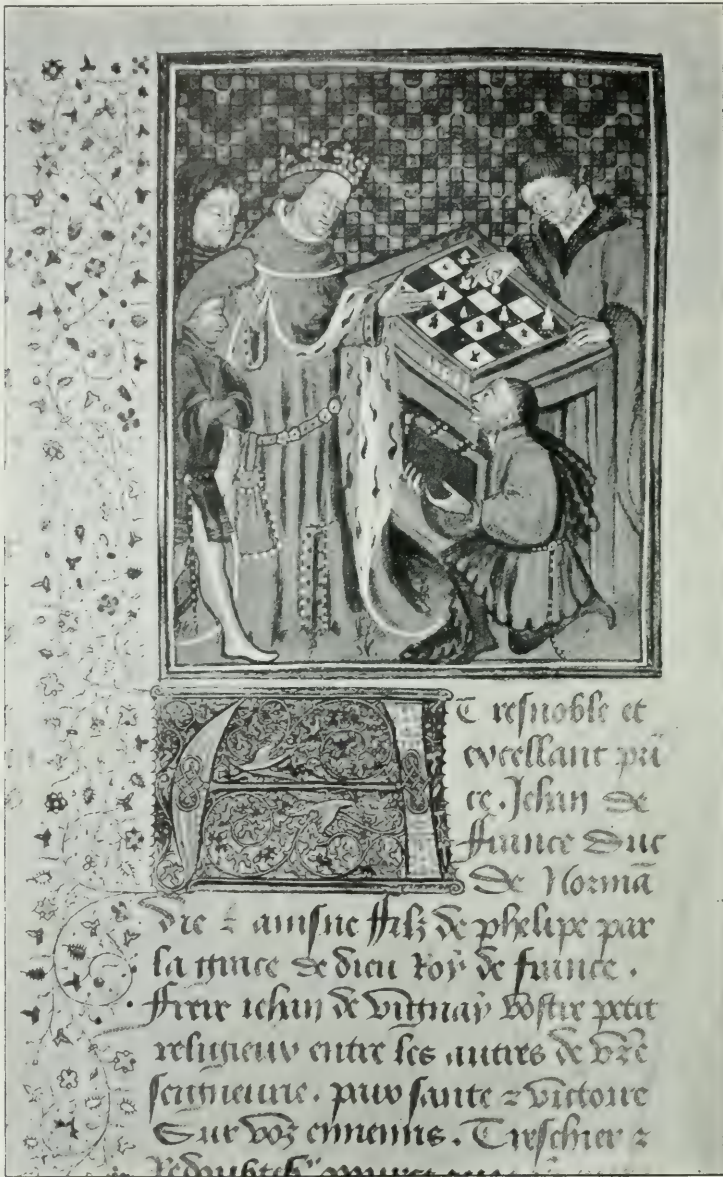 A T resnoble et
excellant prī
ce. Jehan de
ffrance Duc
de Normā
die ⁊ ainsne ffilz de phelipe par
la grace de dieu Roy de france.
ffrere iehan de vignay vostre petit
religieux entre les autres de vr̄e
seigneurie. paix sante ⁊ victoire
Sur voz ennemis. Treschier ⁊
Redoubte